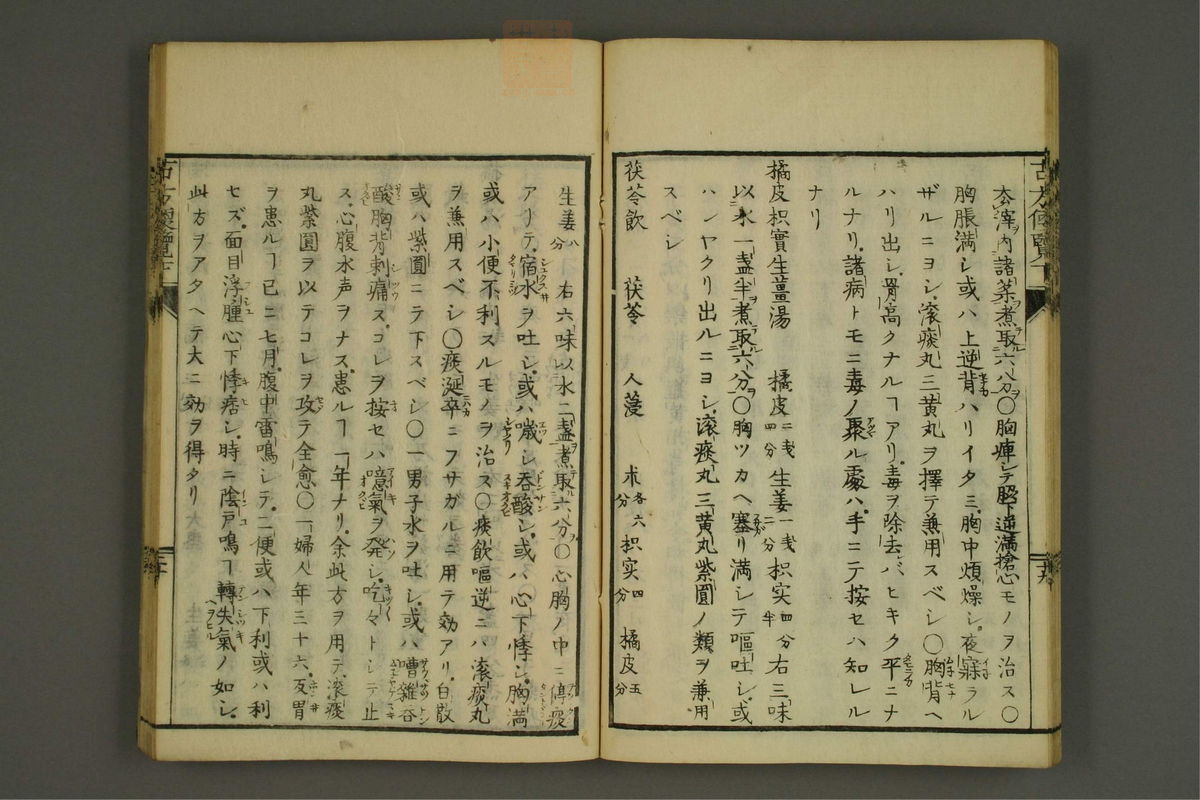 去滓内諸薬煮取六八分〇胸痺シテ脇下逆満搶心モノヲ治ス〇
胸脹満シ或ハ上逆背ハリイタミ胸中煩燥シ夜寐ラル
ザルニヨシ滚痰丸三黄丸ヲ擇テ兼用スベシ〇胸背ヘ
ハリ出シ骨高クナルヿアリ毒ヲ除去レバヒキク平ニナ
ルナリ諸病トモニ毒ノ聚ル處ハ手ニテ按セハ知レル
ナリ
橘皮枳實生薑湯 橘皮二戔四分 生姜一戔二分 枳実四分半 右三味
以水一盞半煮取六分〇胸ツカヘ塞リ満シテ嘔吐シ或
ハシヤクリ出ルニヨシ滚痰丸三黄丸紫圓ノ類ヲ兼用
スベシ
茯苓飲 茯苓 人蔆 朮各六分 枳実四分 橘皮五分
生姜八分 右六味以水二盞煮取六分〇心胸ノ中ニ停痰
アリテ宿水ヲ吐シ或ハ噦シ呑酸シ或ハ心下悸シ胸満
或ハ小便不利スルモノヲ治ス〇痰飲嘔逆ニハ滚痰丸
ヲ兼用スベシ〇痰涎卒ニフサガルニ用テ効アリ白散
或ハ紫圓ニテ下スベシ〇一男子水ヲ吐シ或ハ嘈雜呑
酸胸背刺痛スコレヲ按セハ噫氣ヲ発シ吃々トシテ止
ス心腹水声ヲナス患ルヿ一年ナリ余此方ヲ用テ滚痰
丸紫圓ヲ以テコレヲ攻テ全愈〇一婦人年三十六反胃
ヲ患ルヿ已ニ七月腹中雷鳴シテ二便或ハ下利或ハ利
セズ面目浮腫心下悸痞シ時ニ陰戸鳴ヿ轉失氣ノ如シ
此方ヲアタヘテ大ニ効ヲ得タリ